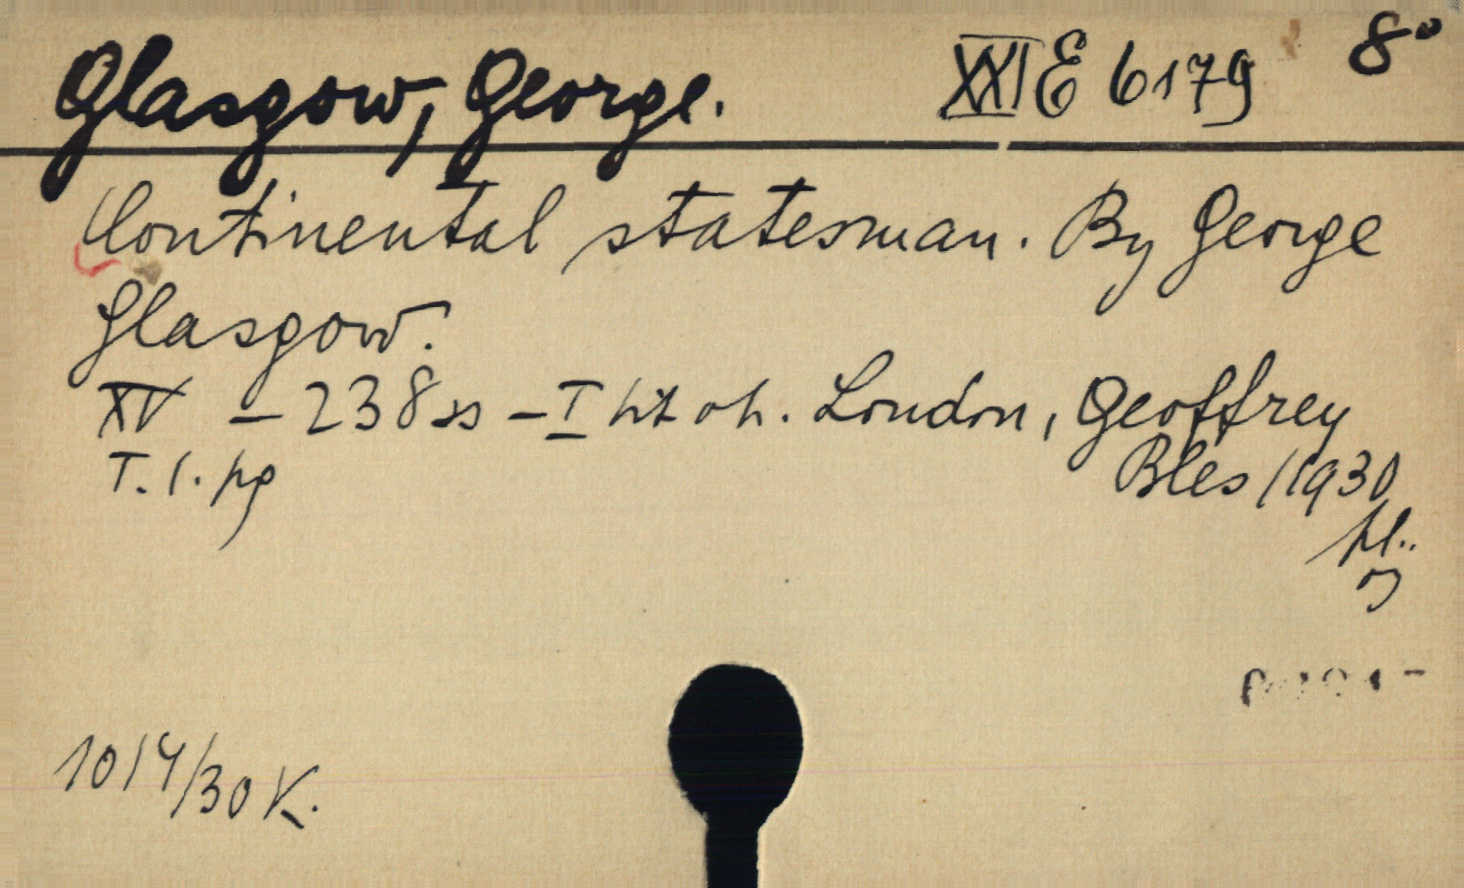 Glasgow, George. XXI E 6179 8°
Continental statesman. By George
Glasgow.
XV – 238 ss – I
London, Geoffrey
T. l. pg Bles / 1930
1014/30 K.